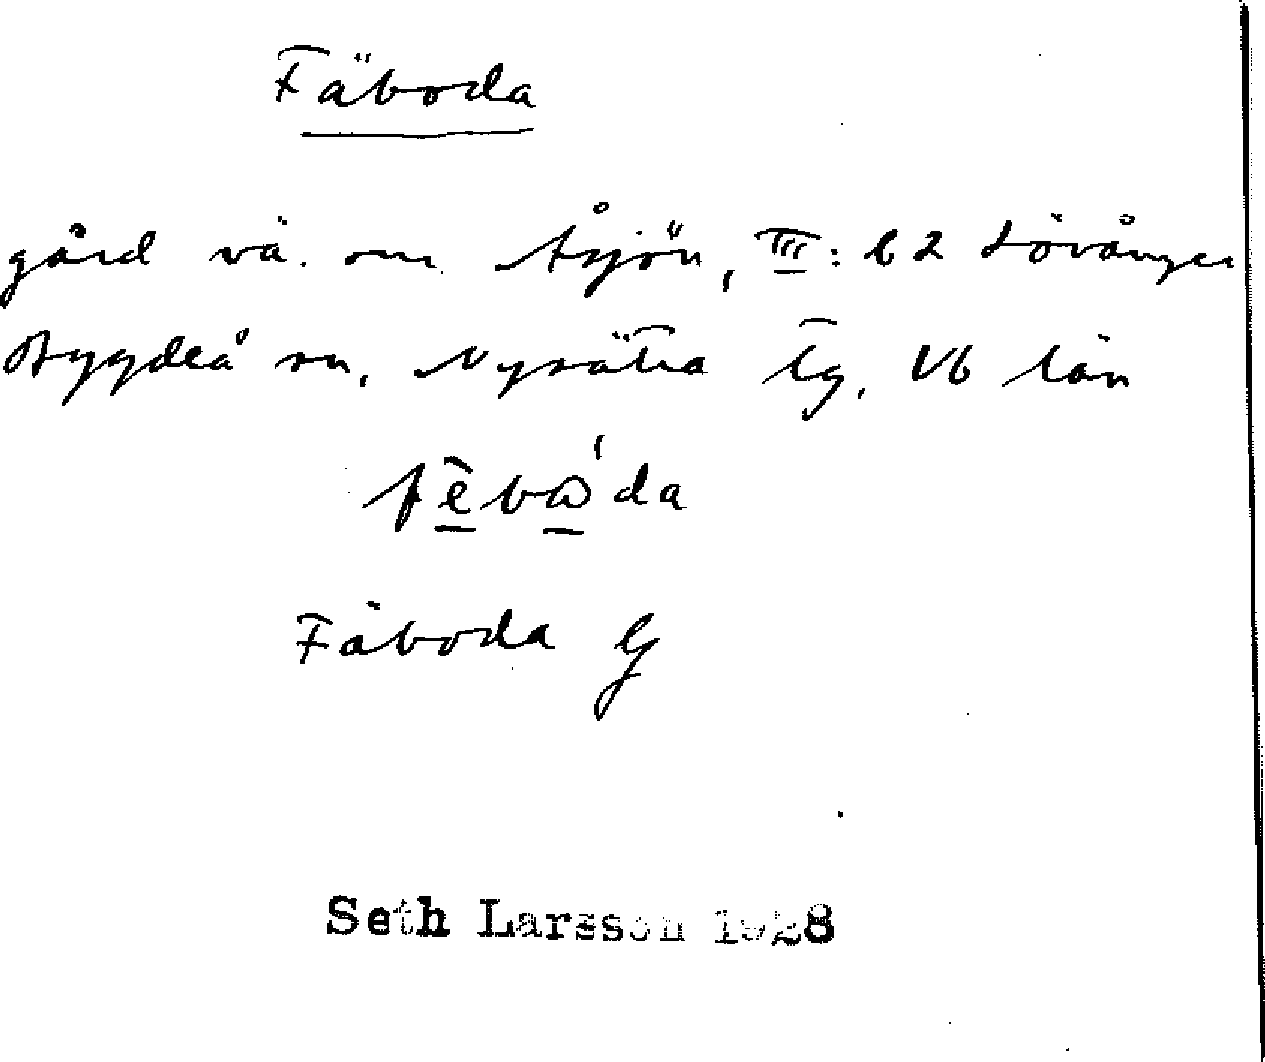 Fäboda
gård vä. om Åsjön, III: b2 Lövånger
Bygdeå sn, Nysätra tg, Vb län
Fäboda G
Seth Larsson 1928